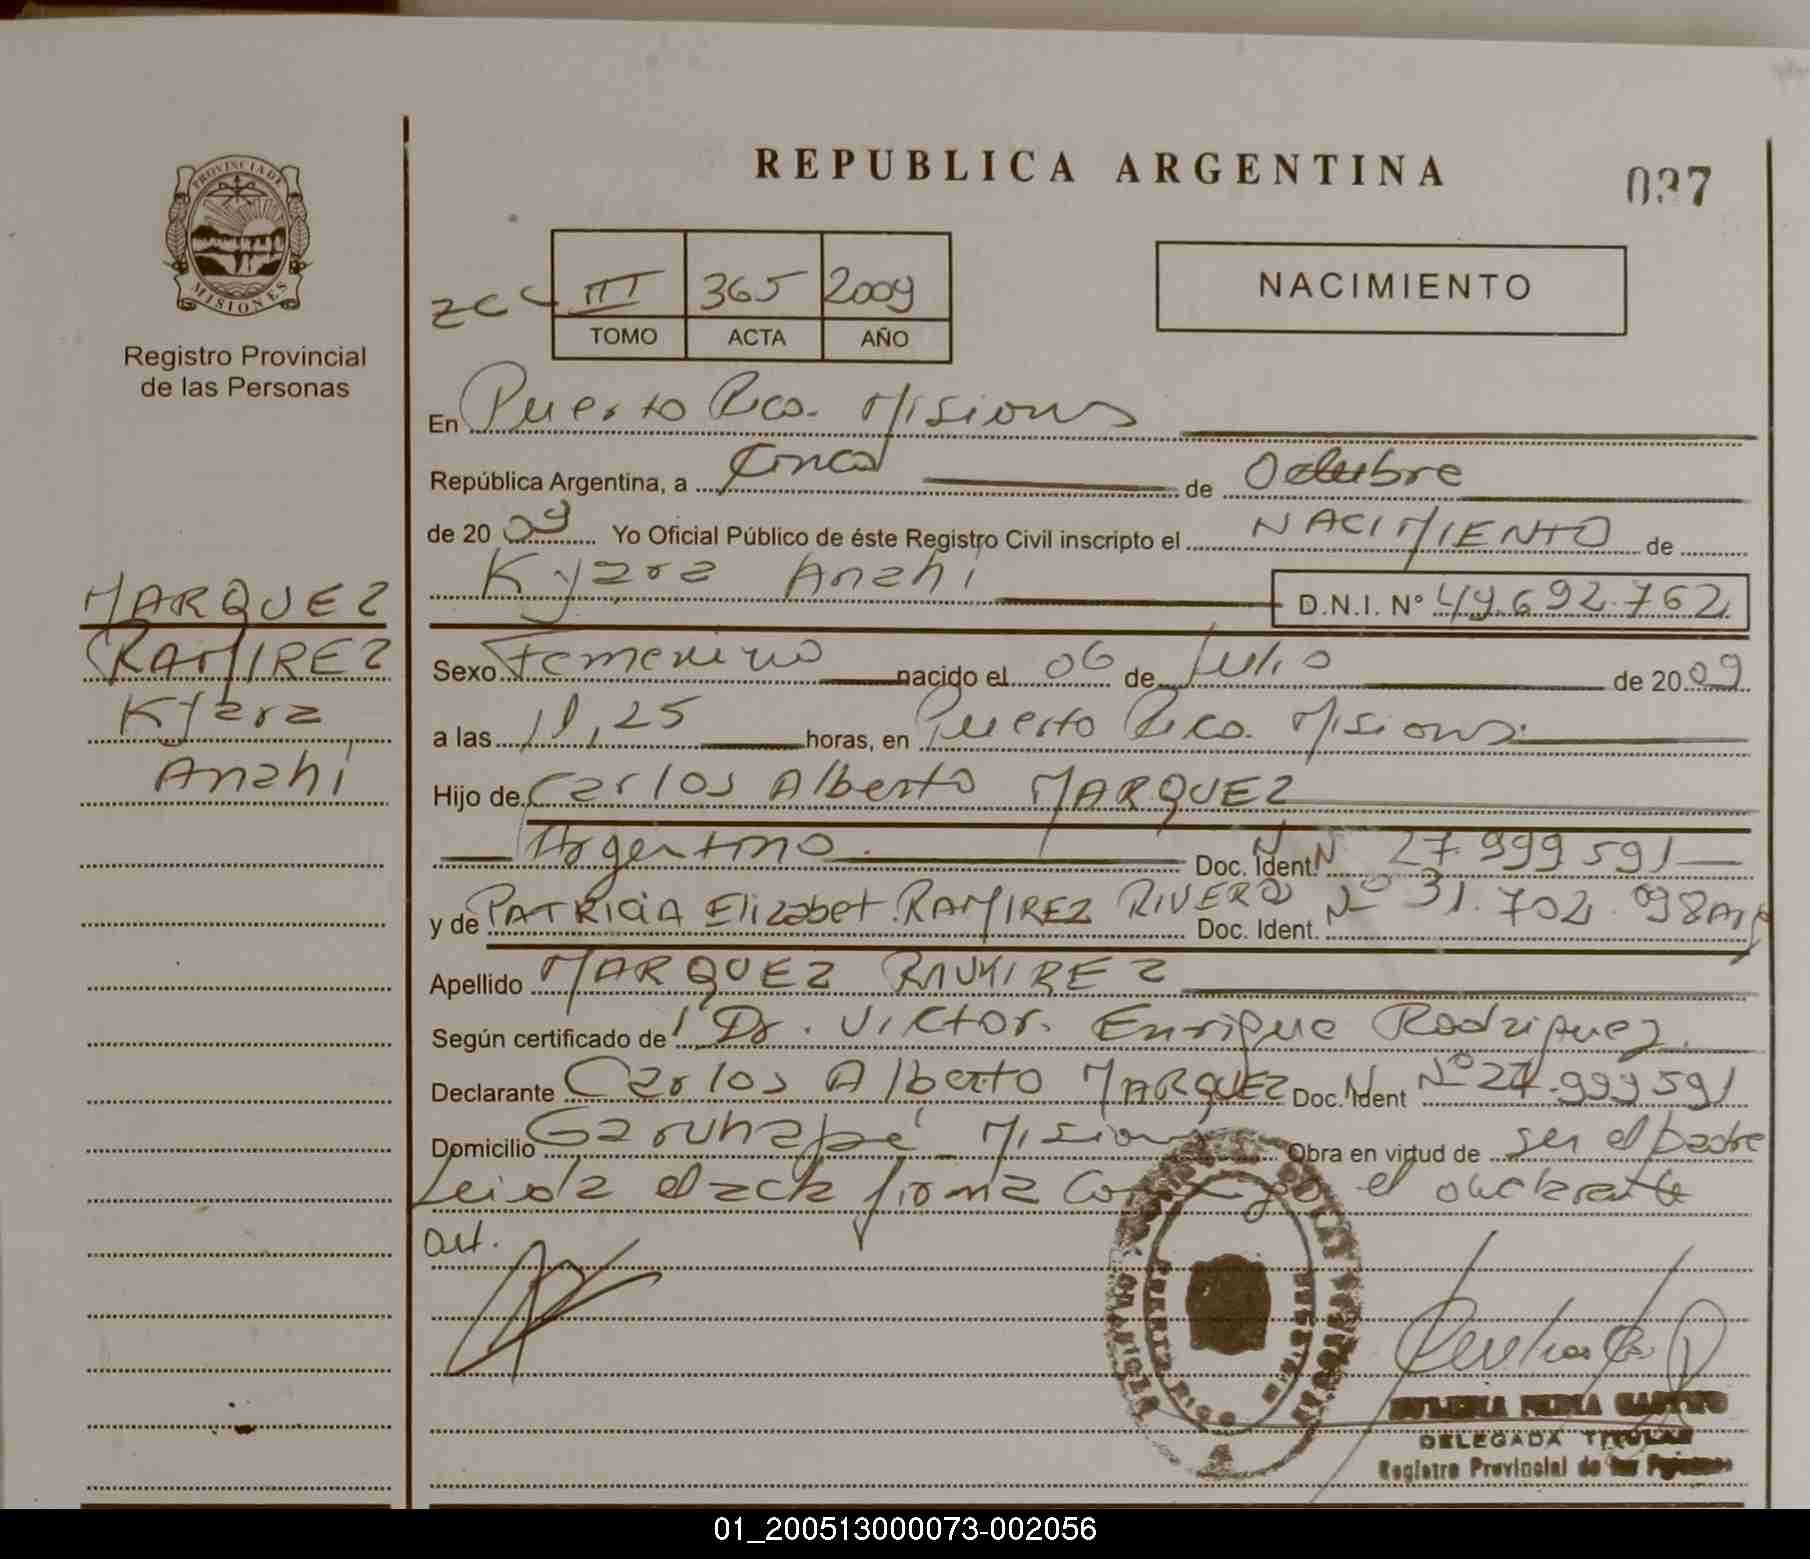 REPUBLICA ARGENTINA
037
PROVINCIA DE
MISIONES
Registro Provincial
de las Personas
NACIMIENTO
III 365 2009
TOMO ACTA AÑO
En Puerto Rico. Misiones
República Argentina, a Cinco de Octubre
de 2009 Yo Oficial Público de éste Registro Civil inscripto el NACIMIENTO de
Kyara Anahi D.N.I. N° 49.692.762
MARQUEZ
RAMIREZ
Kyara
Anahi
Sexo Femenino nacido el 06 de Julio de 2009
a las 11,25 horas, en Puerto Rico. Misiones.
Hijo de Carlos Alberto MARQUEZ
Argentino. Doc. Ident. N 27.999591
y de PATRICIA Elizabet. RAMIREZ RIVEROS Doc. Ident. Nº 31.702.098 Arg
Apellido MARQUEZ RAMIREZ
Según certificado de Dr. Victor. Enrique Rodriguez.
Declarante Carlos Alberto MARQUEZ Doc. Ident Nº 27.999591
Domicilio Garuhapé Misiones Obra en virtud de ser el padre
Leida el acta firma Conmigo el declarante
DELEGADA TITULAR
Registro Provincial de las Personas
01_200513000073-002056